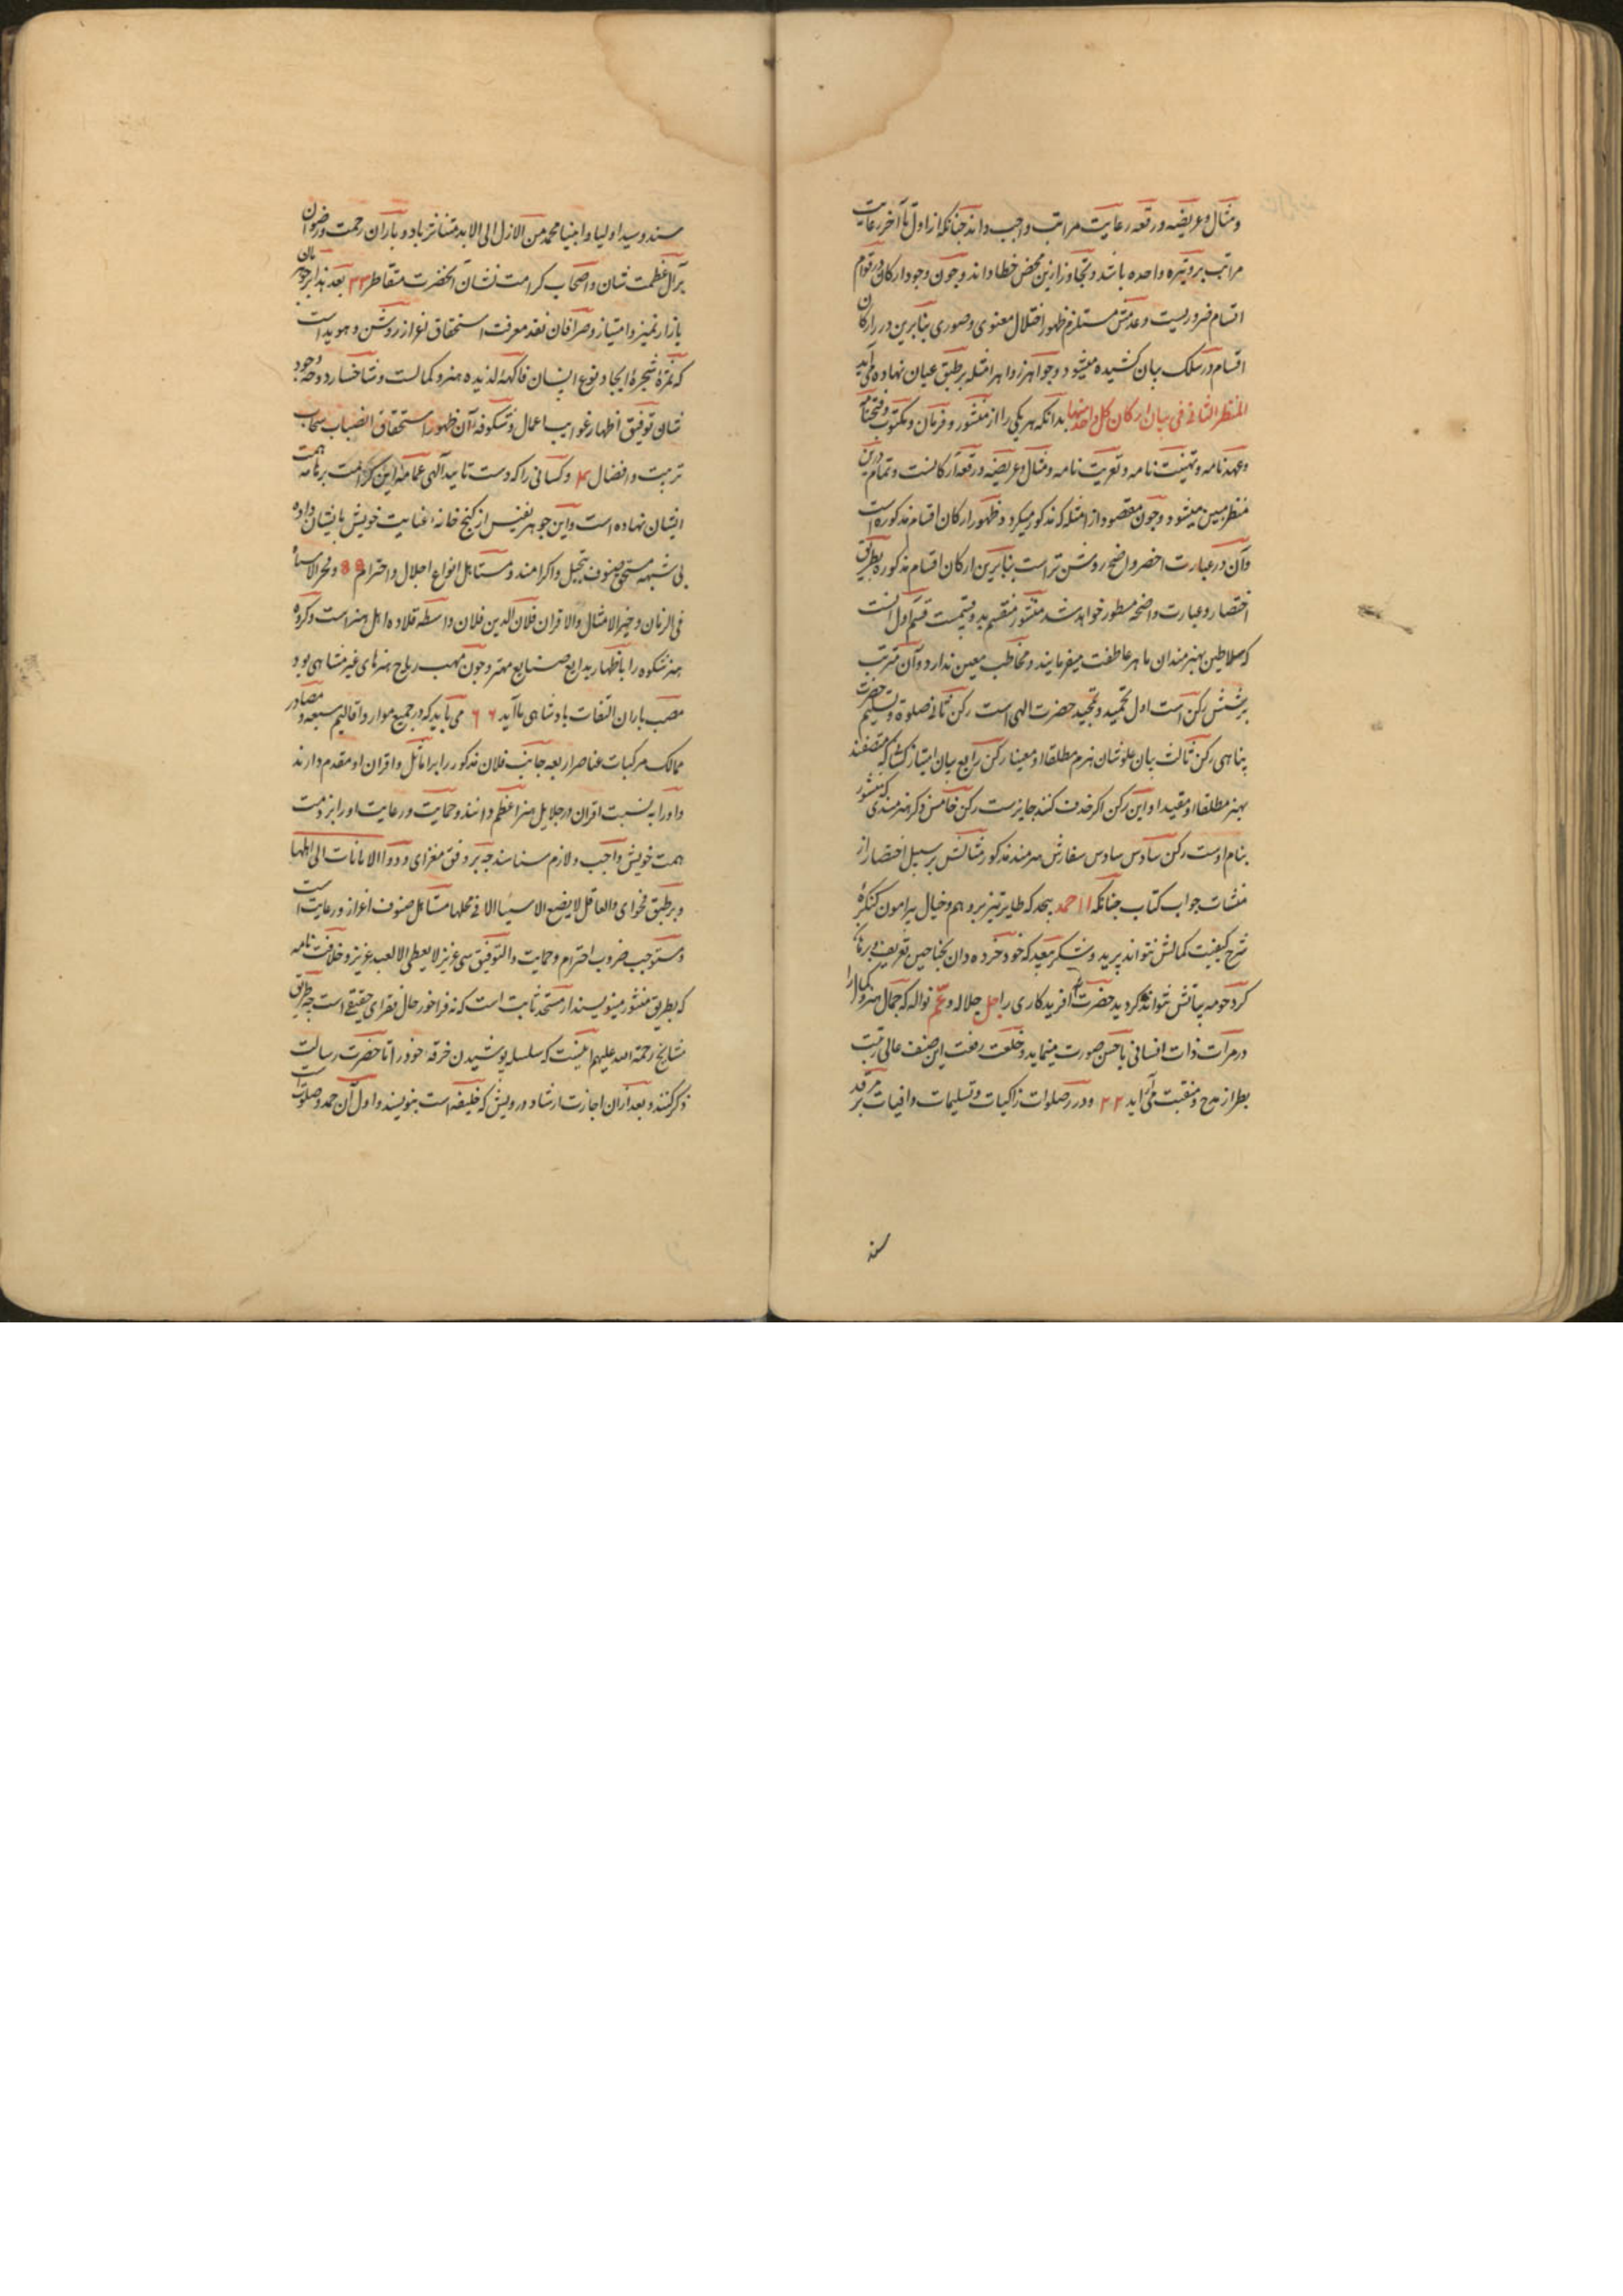 ومثال وعریضه ورقعه رعایت مراتب واجب داند چنانکه از اول تا آخر رعایت
مراتب بر وتیره واحده باشد وتجاوز ازین محض خطا داند وچون وجود ارکان در قوام
اقسام ضروریست وعدمش مستلزم ظهور اختلال معنوی وصوری بنابرین درر ارکان
اقسام در سلک بیان کشیده میشود وجواهر زواهر امثله بر طبق عیان نهاده می آید
المنظر الثانی فی بیان ارکان کل واحد منها بدانکه هر یکی را از منشور وفرمان ومکتوب وفتحنامه
وعهدنامه وتهنیت نامه وتعزیت نامه ومثال وعریضه ورقعه ارکانست وتمام درین
منظر مبین میشود وچون مقصود از امثله که مذکور میکردد ظهور ارکان اقسام مذکوره است
وآن در عبارت اخصر واضح روشن تر است بنابرین ارکان اقسام مذکوره بطریق
اختصار وعبارت واضحه مسطور خواهد شد منشور منقسم بدو قسمت قسم اول آنست
که سلاطین بهنرمندان ماهر عاطفت میفرمایند ومخاطب معین ندارد وآن مترتب
بر شش رکن است اول تحمید وتمجید حضرت الهی است رکن ثانی صلوة وتسلیم حضرت رسالت
پناهی رکن ثالث بیان علو شان هنرم مطلقا او معینا رکن رابع بیان امتیاز کسانی که متصفند
بهنر مطلقا او مقیدا واین رکن اکر حذف کنند جایزست رکن خامس ذکر هنرمندی که منشور
بنام اوست رکن سادس سادس سفارش هنرمند مذکور مثالش بر سبیل اختصار از
منشات جواب کتاب چنانکه ۱۱ حمد بیحد که طایر تیز پر وهم وخیال پیرامون کنکرهٔ
شرح کیفیت کمالش نتواند پرید وشکر بیعد که خود خرده دان بجناحین تعریف وبرهان
کرد حومه بیانش نتواند کردید حضرت افریدکاری را جل جلاله وعم نواله که جمال هنر وکمال را
در مرات ذات انسانی باحسن صورت مینماید وخلعت رفعت این صنف عالی رتبت
بطراز مدح ومنقبت می آراید ۲۲ ودرر صلوات زاکیات وتسلیمات وافیات بر مرقد
سند
سند وسید اولیا وانبیا محمد من الازل الی الابد متناثر باد وباران رحمت ورضوان
بر آل عظمت شان واصحاب کرامت نشان آنحضرت متقاطر ۳۳ بعد هذا بر جوهریان
بازار تمیز وامتیاز وصرافان نقد معرفت استحقاق اعزاز روشن وهویداست
که ثمرهٔ شجرهٔ ایجاد نوع انسان فاکههٔ لذیذه هنر وکمالست وشاخسار دوحه وجود
شان توفیق اظهار غرایب اعمال وشکوفه آن ظهور استحقاق انصباب سحاب
تربیت وافضال ۴ وکسانی را که دست تایید آلهی عمامه این کرامت بر هامه همت
ایشان نهاده است واین جوهر نفیس از کنج خانه عنایت خویش بایشان داده
بی شبهه مستحق صنوف تبجیل واکرامند ومستاهل انواع اجلال واحترام ۵۵ وفخر الاسیاد
فی الزمان وخیر الامثال والاقران فلان الدین فلان واسطه قلاده اهل هنر است وکروه
هنر شکوه را باظهار بدایع صنایع مهتر وچون مهب ریاح هنرهای غیر متناهی بود
مصب باران التفات پادشاهی باآید ۶۶ می باید که در جمیع موارد اقالیم سبعه ومصادر
ممالک مرکبات عناصر اربعه جانب فلان مذکور را بر اماثل واقران او مقدم دارند
واورا به نسبت اقران در جلایل هنر اعظم دانند وحمایت ورعایت اورا بر ذمت
همت خویش واجب ولازم شناسند چه بر وفق مغزای ودوا الامانات الی اهلها
وبر طبق فحوای والعاقل لا یضع الاسیا الا فی محلها مستاهل صنوف اعزاز ورعایت است
ومستوجب ضروب احترام وحمایت والتوفیق سی عزیز لا یعطی الا لعبد عزیز وخلافت نامه
که بطریق منشور مینویسند از مستحد ثابت است که نه فراخور حال فقرای حقیقی است چه طریق
مشایخ رحمة الله علیهم اینست که سلسله پوشیدن خرقه خود را تا حضرت رسالت
ذکر کنند وبعد ازان اجازت ارشاد درویش که خلیفه است بنویسند واول آن حمد وصلوات